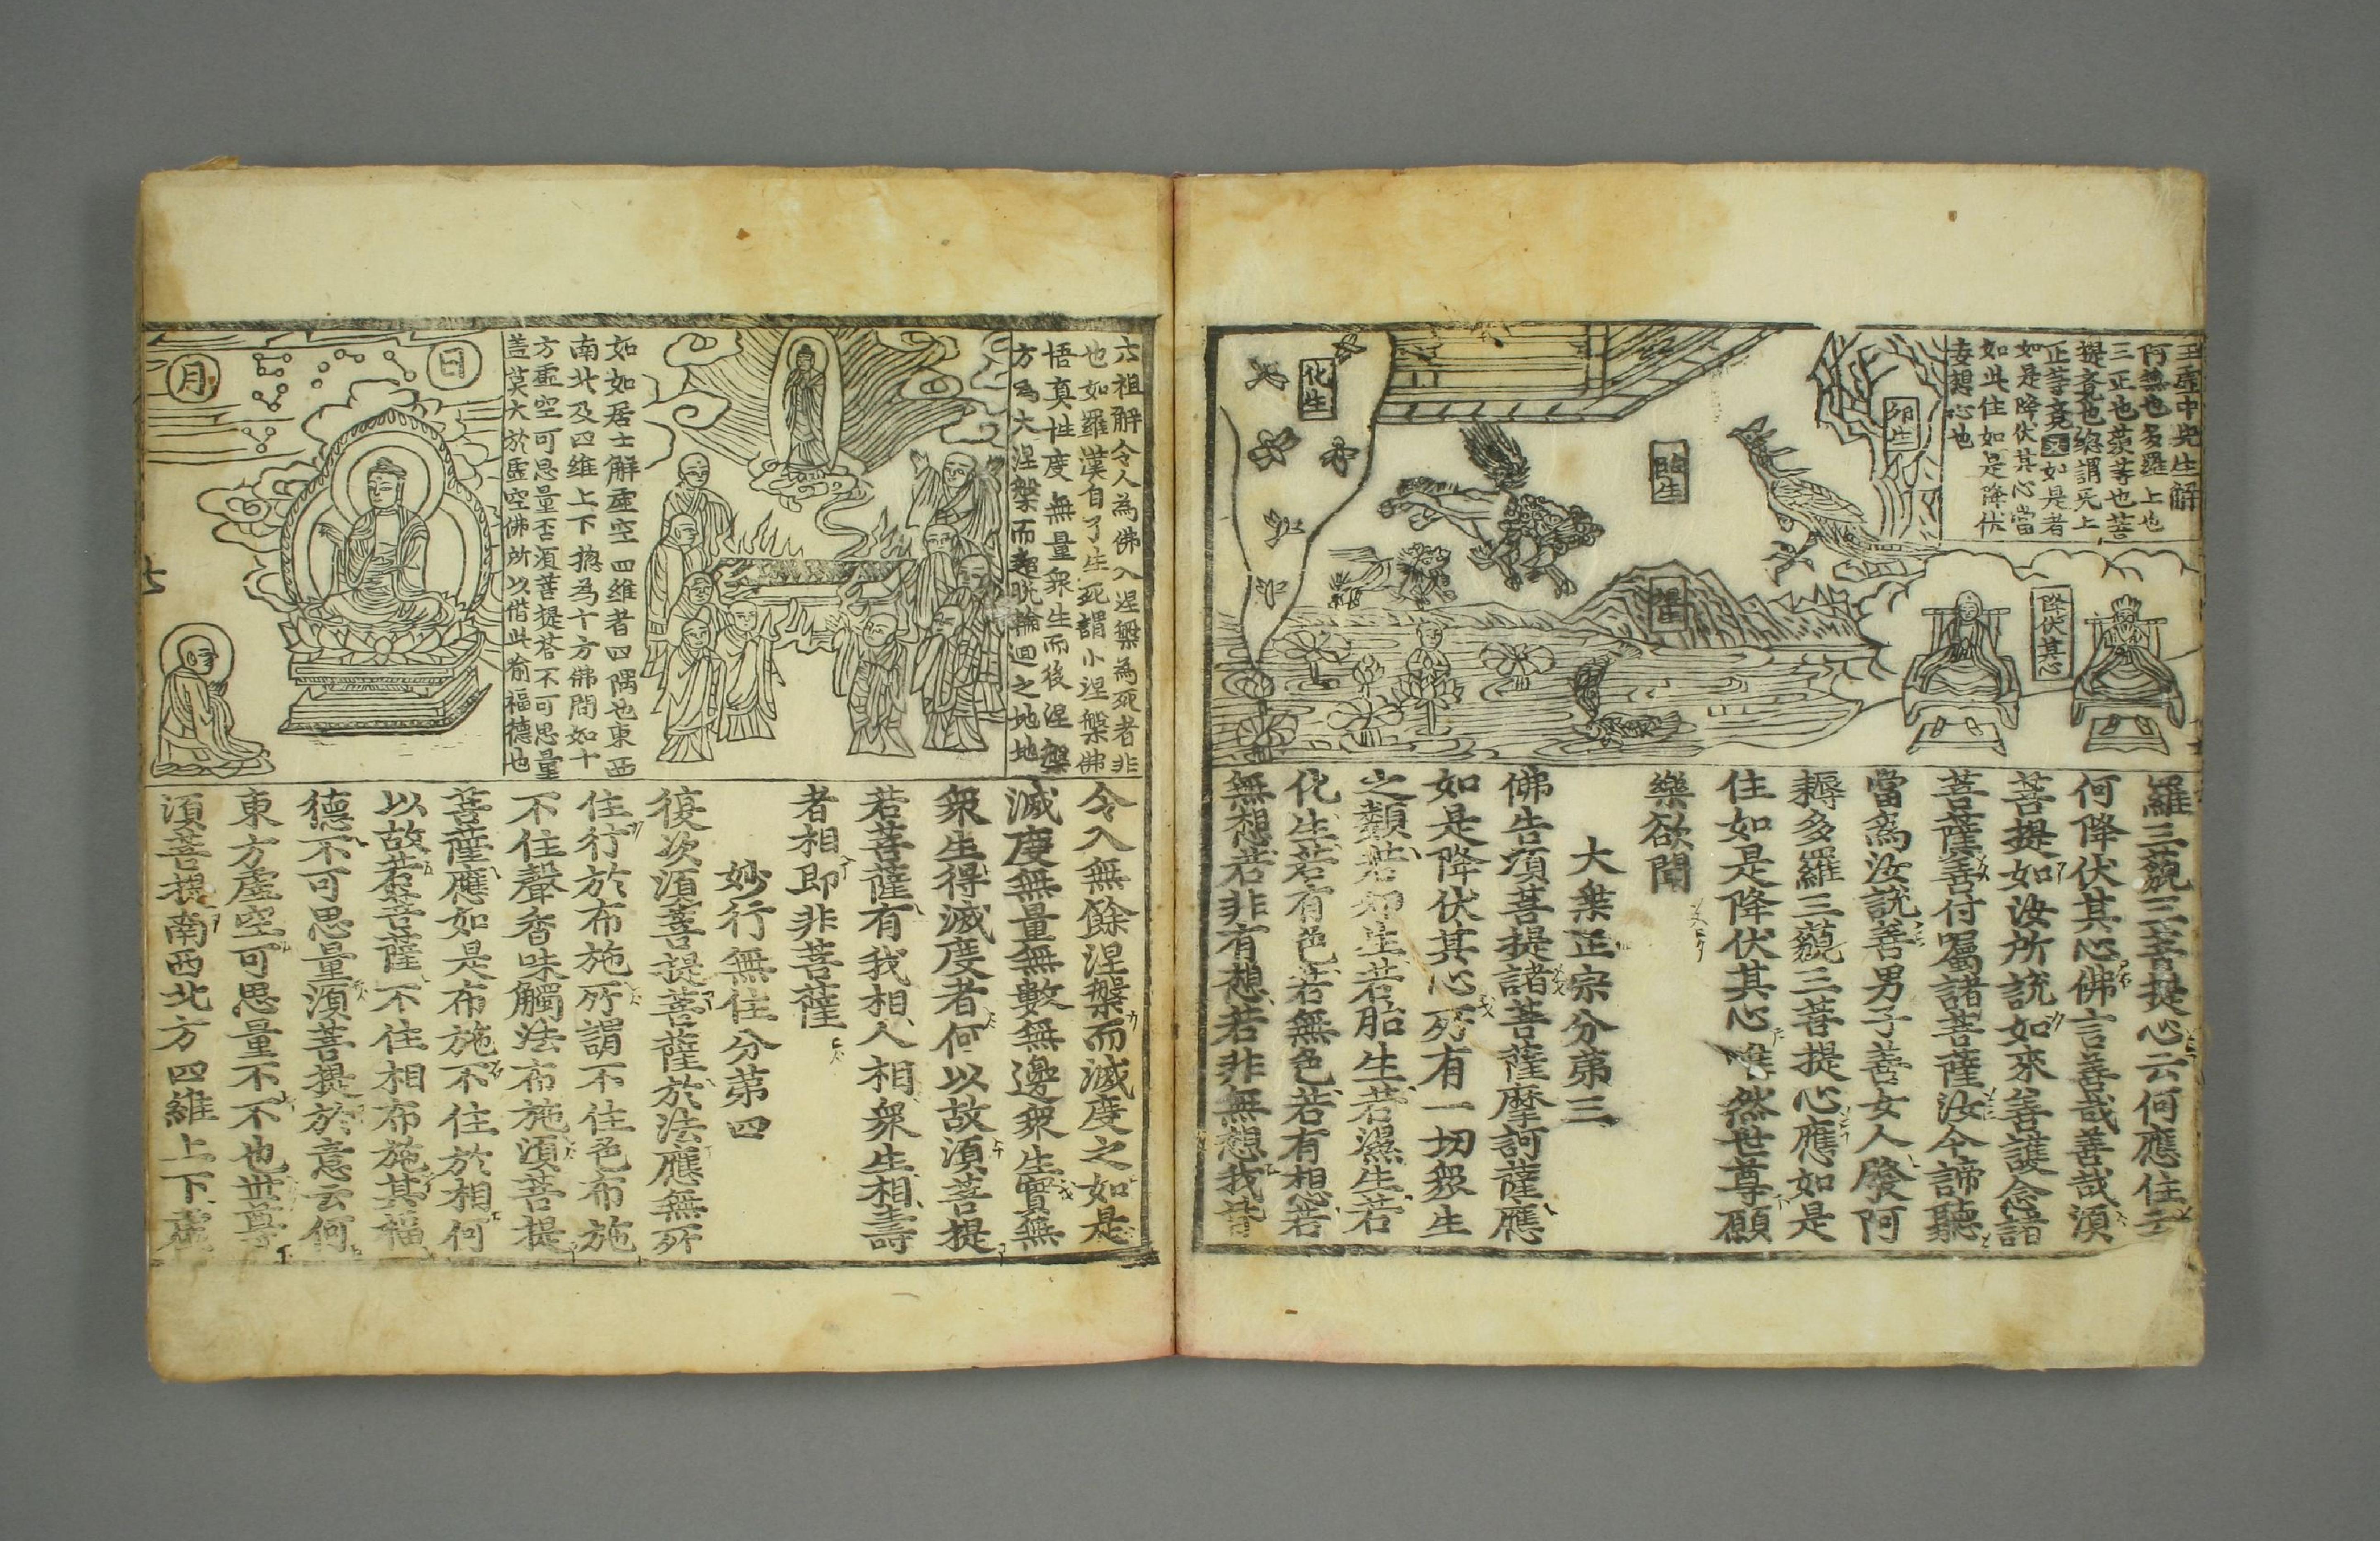 王虛中先生解
阿無也多羅上也
三正也藐等也菩
提竟也總謂无上
正等竟如是者
如是降伏其心當
如此住如是降伏
妄想心也
降伏其心
卵生
胎生
濕
化生
羅三藐三菩提心云何應住云
何降伏其心佛言善哉善哉湏
菩提如汝所說如來善護念諸
菩薩善付囑諸菩薩汝今諦聽
當爲汝說善男子善女人發阿
耨多羅三藐三菩提心應如是
住如是降伏其心唯然世尊願
樂欲聞
大乗正宗分第三
佛告湏菩提諸菩薩摩訶薩應
如是降伏其心所有一切衆生
之類若卵生若胎生若濕生若
化生若有色若無色若有想若
無想若非有想若非無想我皆
六祖解令人為佛入涅槃為死者非
也如羅漢自了生死謂小涅槃佛
悟真性度無量衆生而後涅槃
方為大涅槃而超脫輪迴之地地
如如居士解虛空四維者四隅也東西
南北及四維上下揔為十方佛問如十
方虛空可思量否湏菩提荅不可思量
盖莫大於虛空佛所以借此喻福德也
日
月
令入無餘涅槃而滅度之如是
滅度無量無數無邊衆生實無
衆生得滅度者何以故湏菩提
若菩薩有我相人相衆生相壽
者相即非菩薩
妙行無住分第四
復次湏菩提菩薩於法應無所
住行於布施所謂不住色布施
不住聲香味觸法布施湏菩提
菩薩應如是布施不住於相何
以故若菩薩不住相布施其福
德不可思量湏菩提於意云何
東方虛空可思量不不也世尊
湏菩提南西北方四維上下虛
七